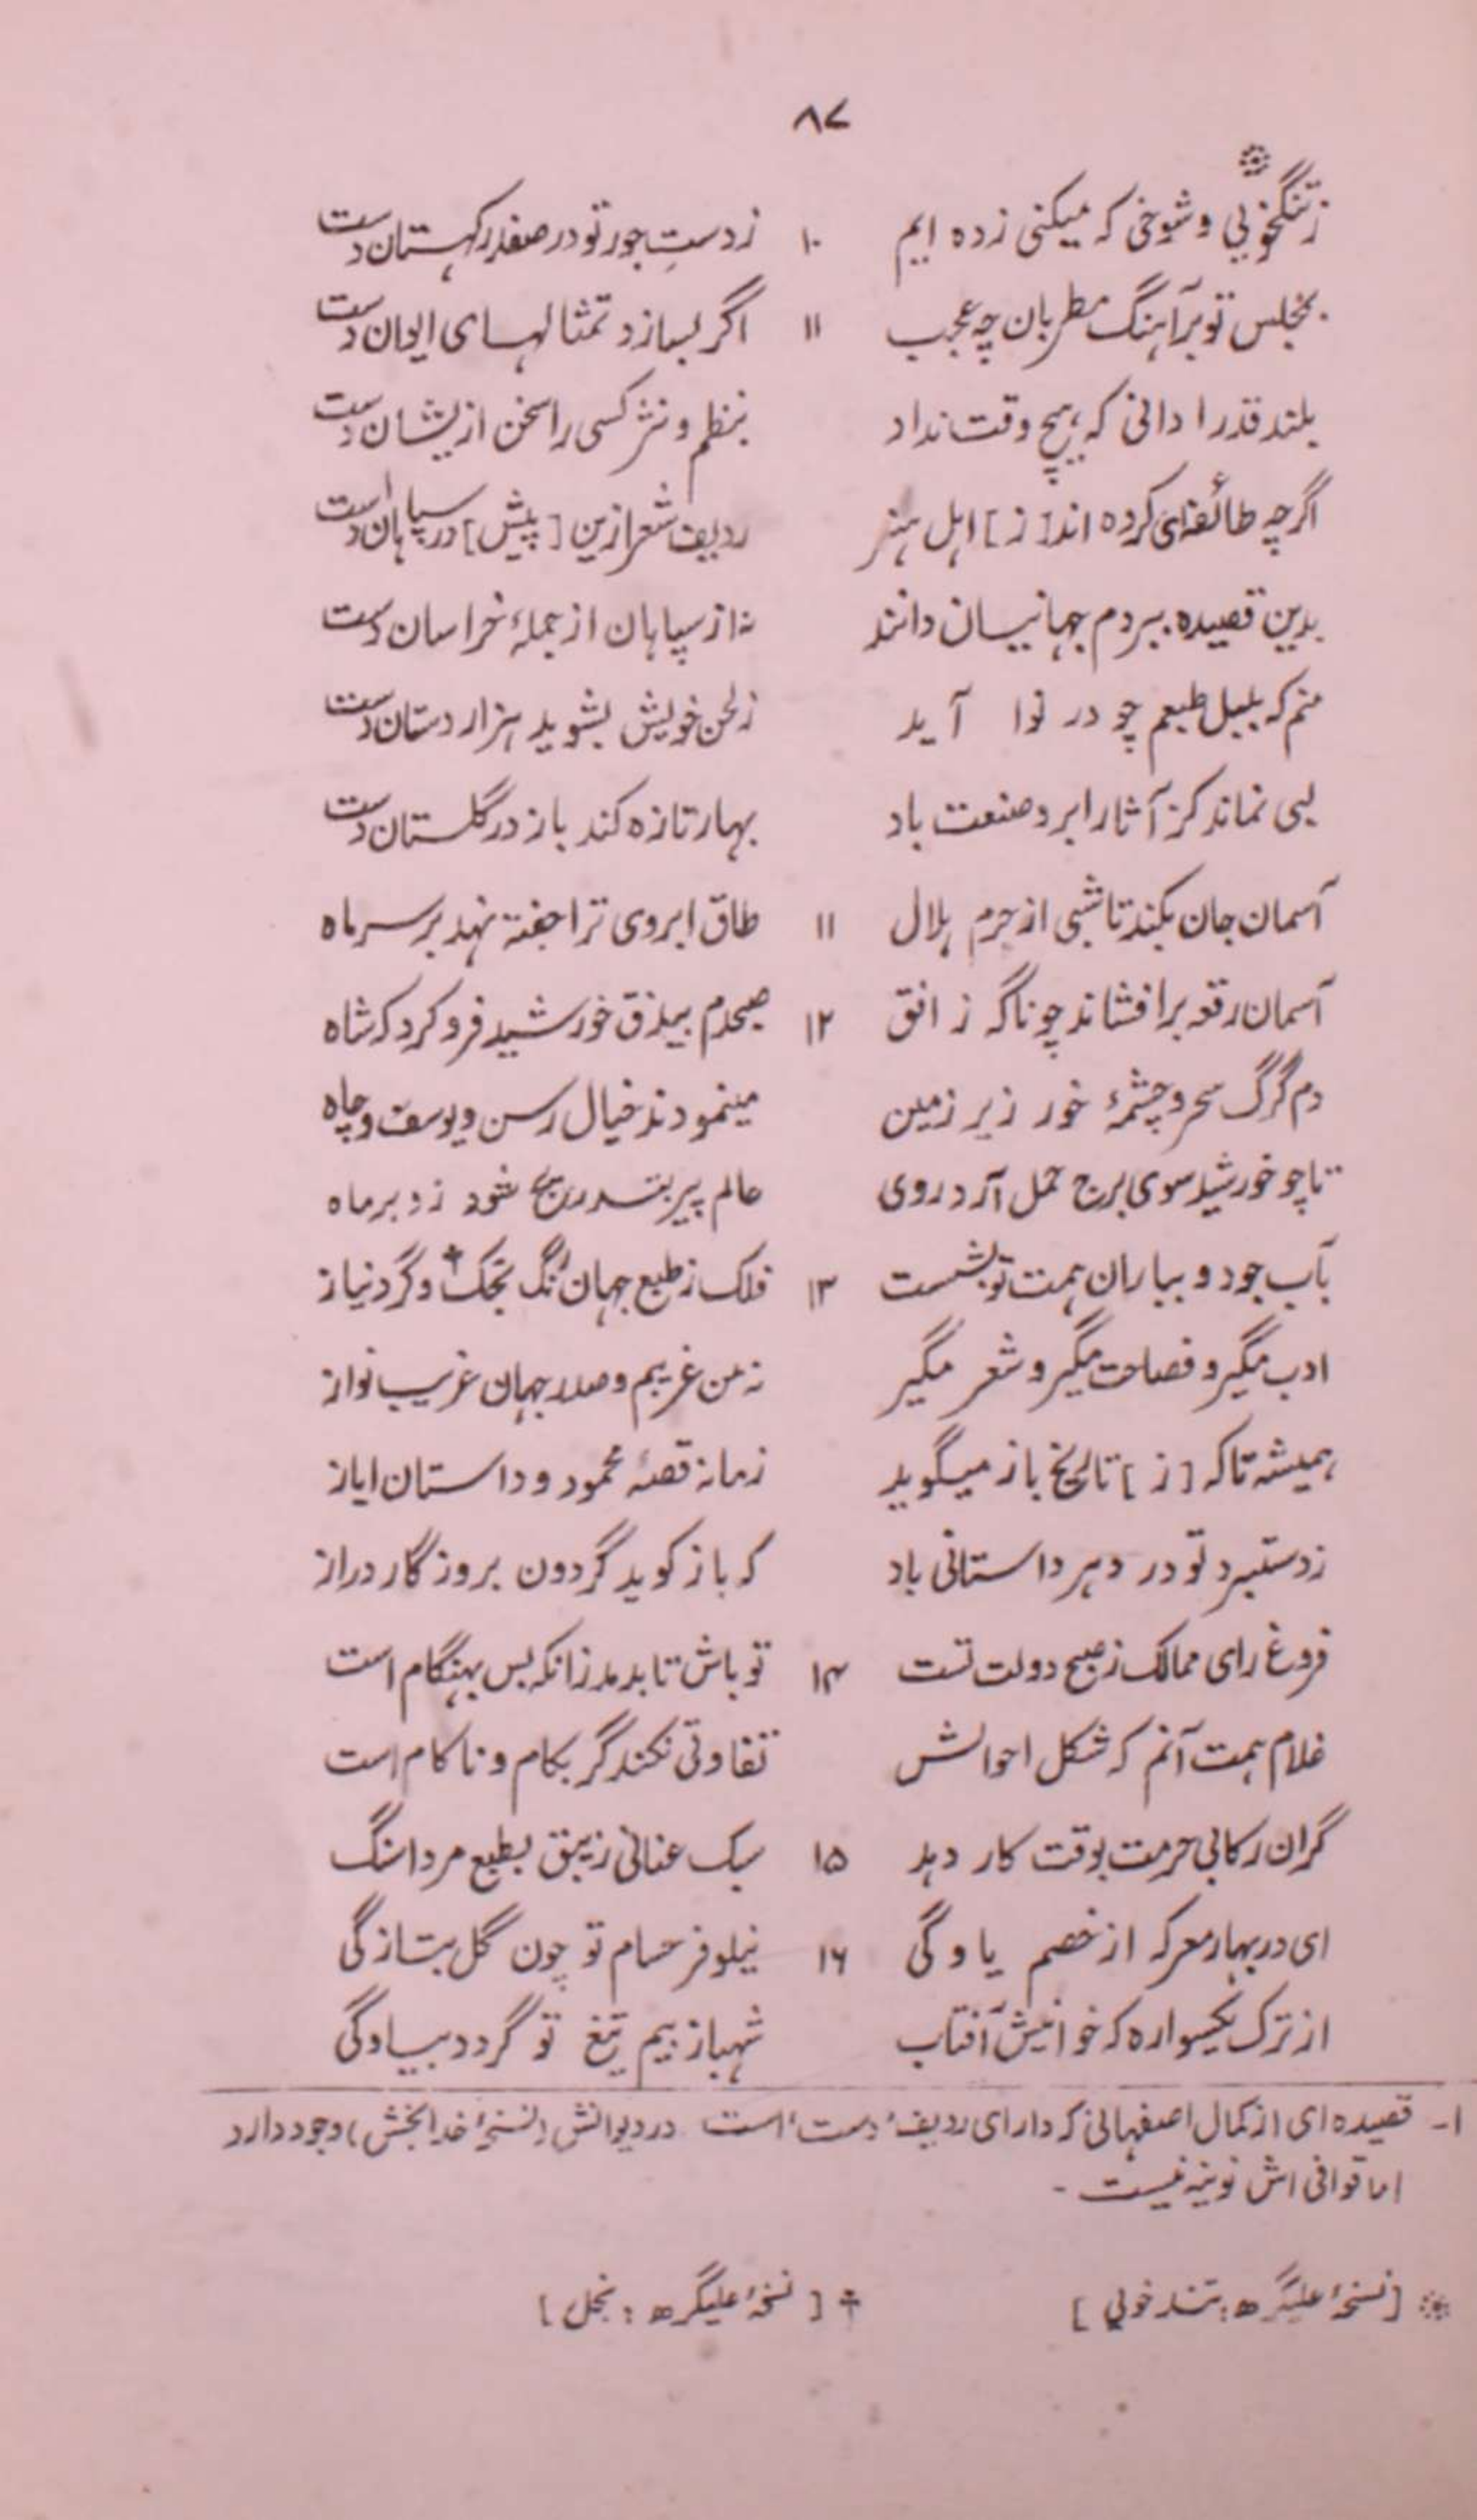 ۸۷
زتنگخویی و شوخی که میکنی زده ایم ۱۰ زدستِ جور تو در صفدر کهستان دست
بمجلس تو بر آهنگ مطربان چه عجب ۱۱ اگر بسازد تمثالهای ایوان دست
بلند قدرا دانی که هیچ وقت نداد بنظم و نثر کسی را سخن ازیشان دست
اگرچه طائفه‌ای کرده اند [ز] اهل هنر ردیف شعر ازین [پیش] در سپاهان دست¹
بدین قصیده ببردم جهانیان دانند نه از سپاهان از جملهٔ خراسان دست
منم که بلبل طبعم چو در نوا آید زلحن خویش بشوید هزار دستان دست
بسی نماند کز آثار ابر و صنعت باد بهار تازه کند باز در گلستان دست
آسمان جان بکند تا شبی از جرم هلال ۱۱ طاق ابروی ترا جفته نهد بر سر ماه
آسمان رقعه برافشاند چو ناگه ز افق ۱۲ صبحدم بیذق خورشید فرو کرد که شاه
دم گرگ سحر و چشمهٔ خور زیر زمین مینمودند خیال رسن و یوسف و چاه
تا چو خورشید سوی برج حمل آرد روی عالم پیر بتدریج شود زد برماه
بآب جود و بباران همت تو بشست ۱۳ فلک ز طبع جهان ننگ بحک† و گرد نیاز
ادب مگیر و فصاحت مگیر و شعر مگیر نه من غریبم و صدر جهان غریب نواز
همیشه تا که [ز] تاریخ باز میگوید زمانه قصهٔ محمود و داستان ایاز
زدستبرد تو در دهر داستانی باد که باز گوید گردون بروزگار دراز
فروغ رای ممالک ز صبح دولت تست ۱۴ تو باش تا بدمد زانکه بس بهنگام است
غلام همت آنم که شکل احوالش تفاوتی نکند گر بکام و ناکام است
گران رکابی حزمت بوقت کار دهد ۱۵ سبک عنانی زیبق بطبع مرداسنگ
ای در بهار معرکه از خصم یاوگی ۱۶ نیلوفر حسام تو چون گل بتازگی
از ترک یکسواره که خوانیش آفتاب شهباز بیم تیغ تو گردد بیاوگی
۱- قصیده ای از کمال اصفهانی که دارای ردیف 'دست' است در دیوانش (نسخهٔ خدابخش) وجود دارد
اما قوافی اش نونیه نیست -
* [نسخهٔ علیگره: تندخویی] † [نسخهٔ علیگره: بخل]